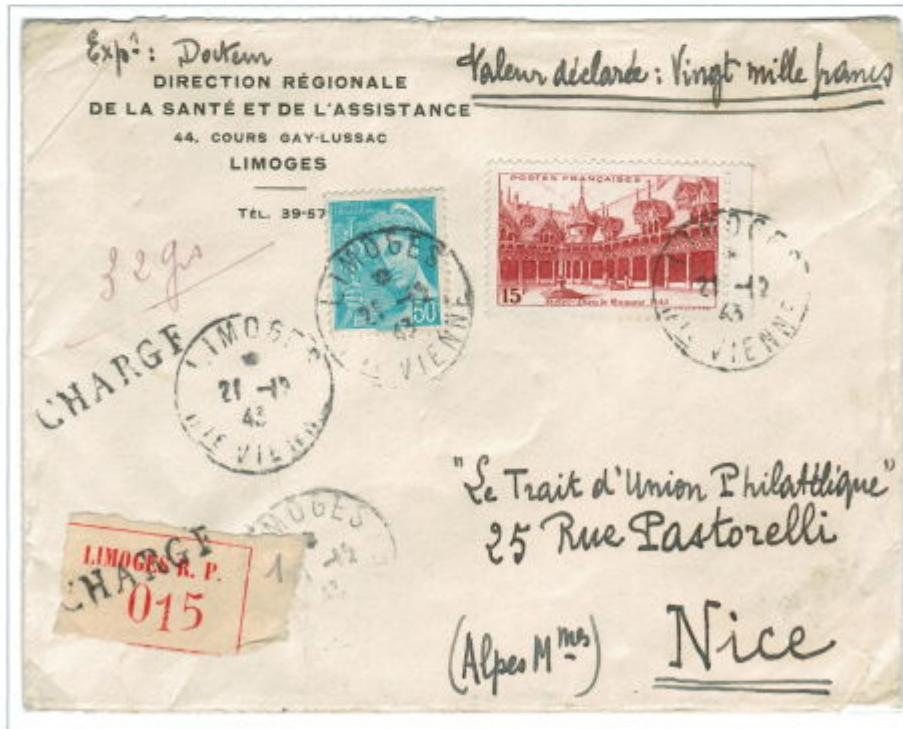 Expr : Docteur
DIRECTION RÉGIONALE
DE LA SANTÉ ET DE L'ASSISTANCE
44, COURS GAY-LUSSAC
LIMOGES
TÉL. 39-57
Valeur déclarée : Vingt mille francs
32 grs
50
POSTES FRANÇAISES
15F
LIMOGES
21 -12
43
Hte VIENNE
LIMOGES
21 -12
43
Hte VIENNE
CHARGE
LIMOGES
21 -12
43
Hte VIENNE
LIMOGES
-12
CHARGE
LIMOGES R. P.
015
1
"Le Trait d'Union Philatélique"
25 Rue Pastorelli
(Alpes Mmes) Nice